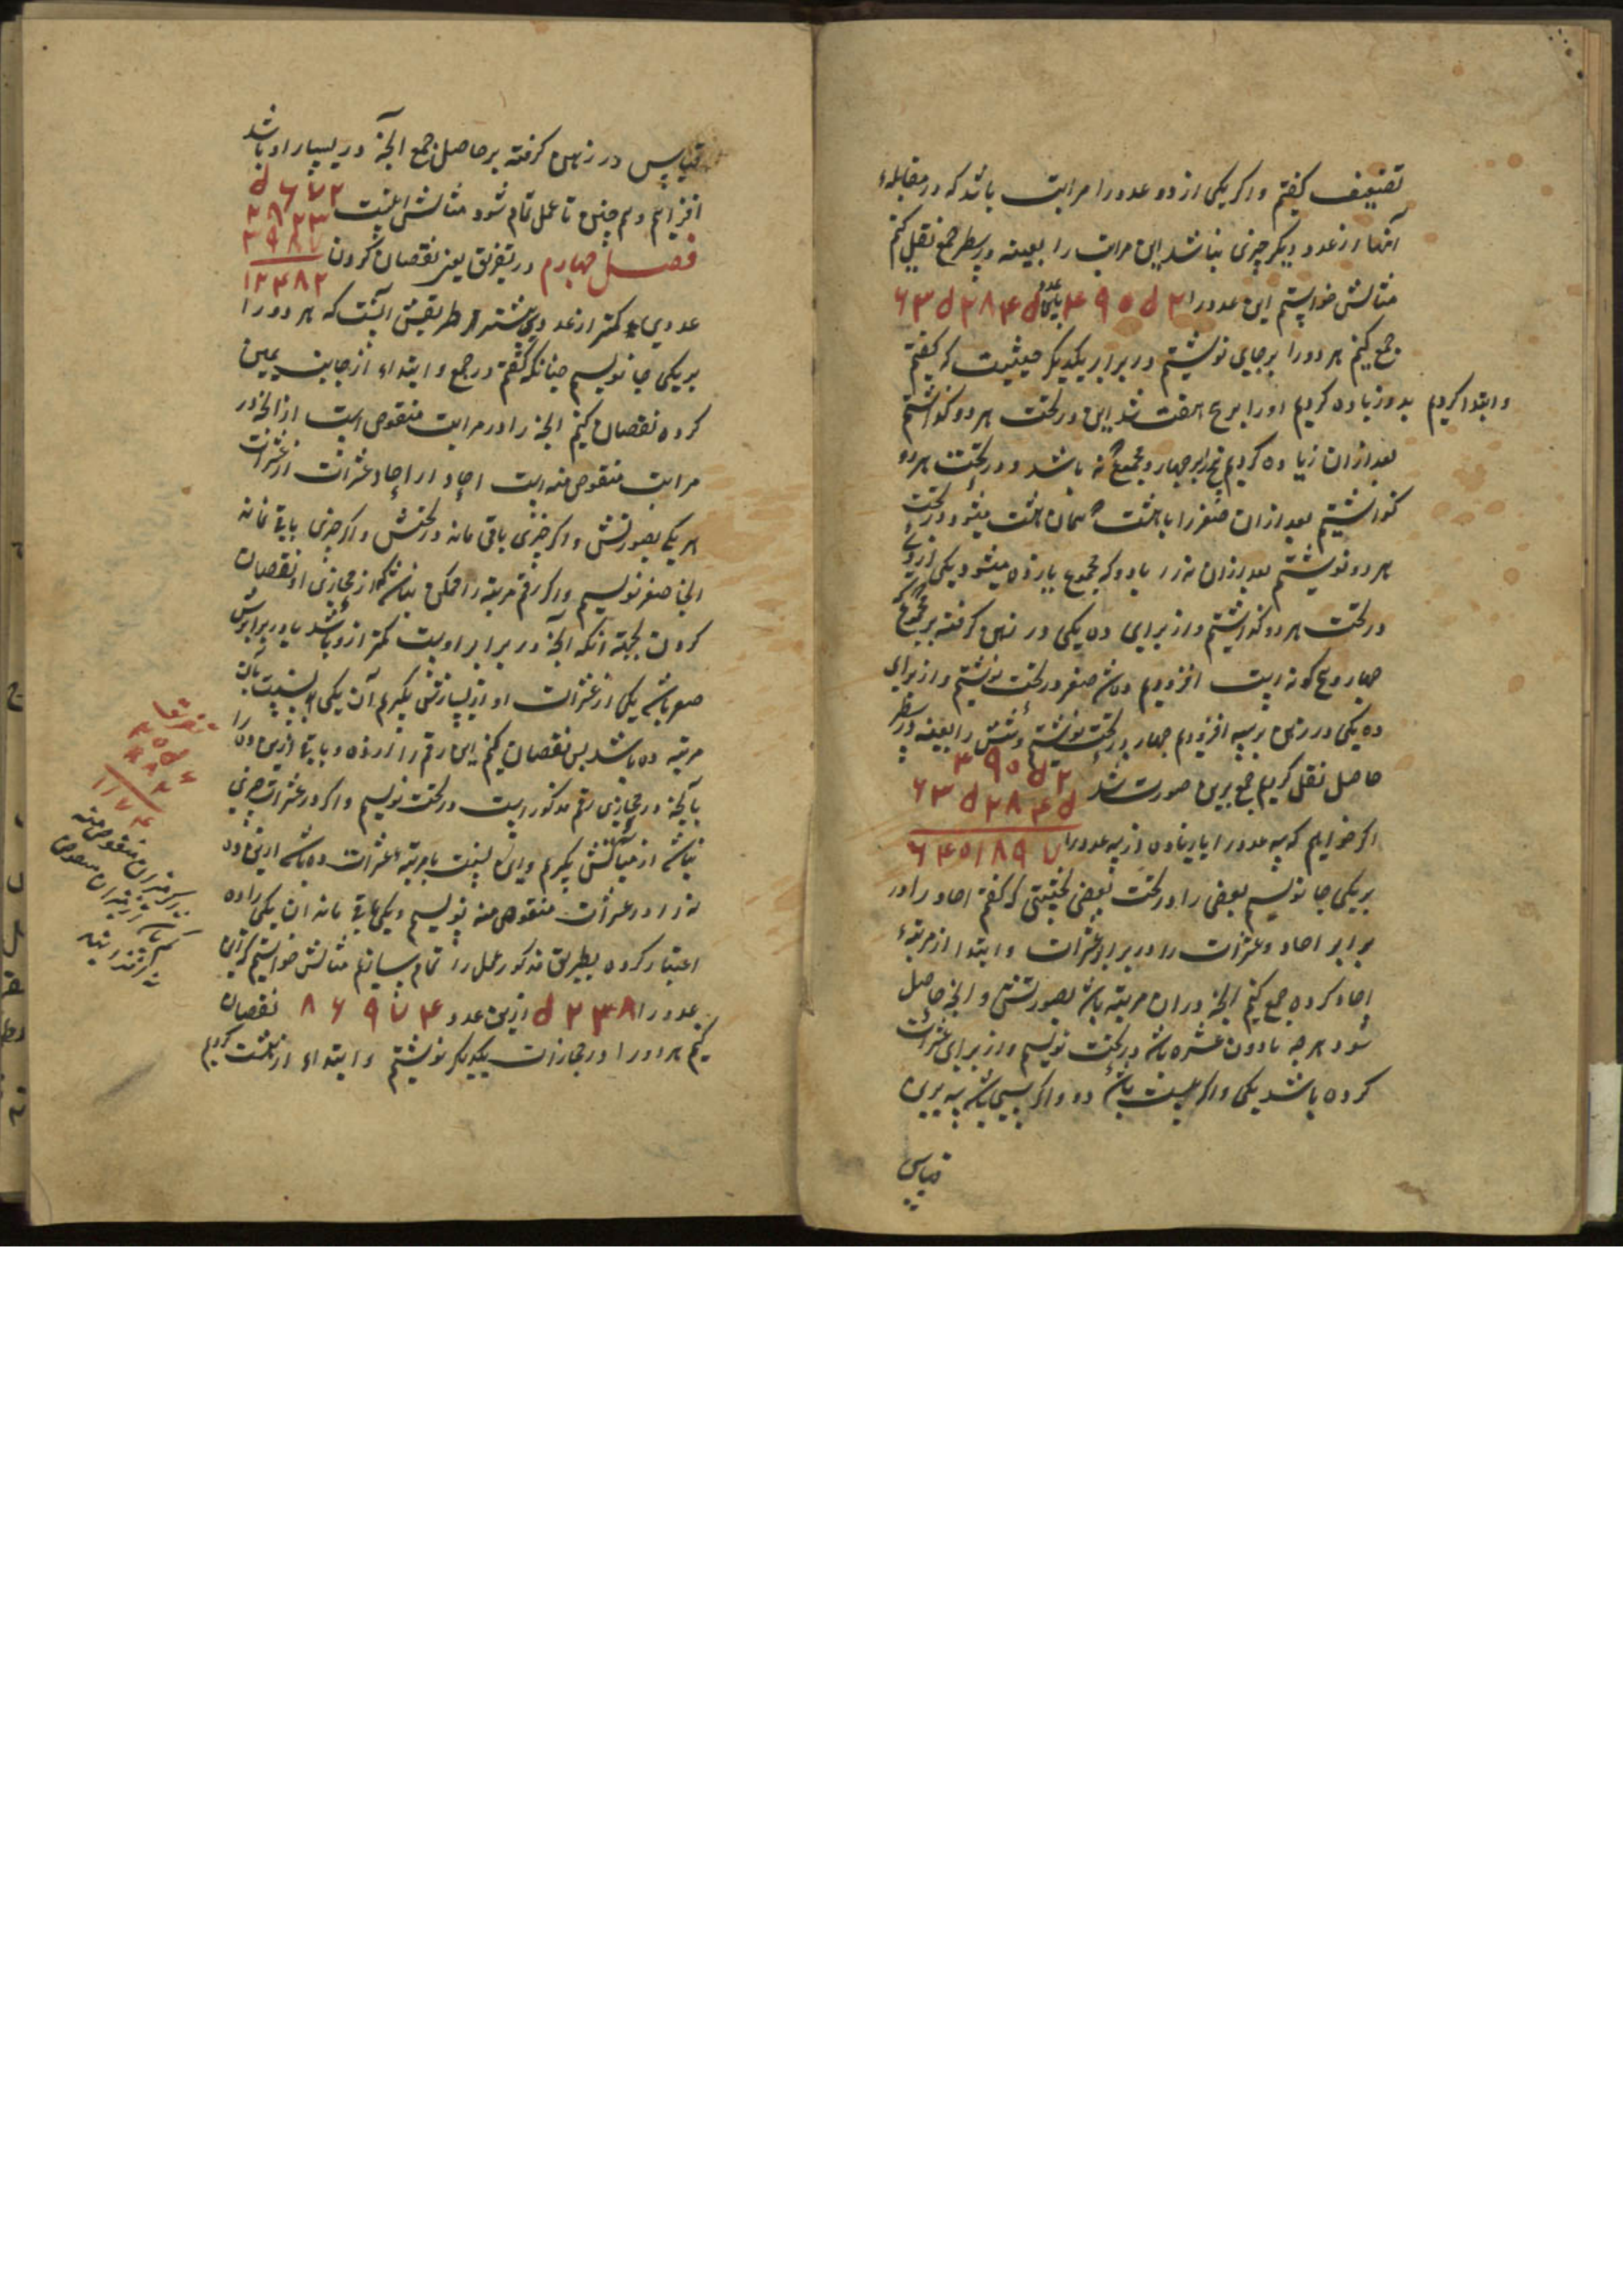 تضعیف کفتم و اکر یکی از دو عدد را مراتب باشد که در مقابلهٔ
آنها از عدد دیکر چیزی نباشد این مراتب را بعینه در سطر جمع نقل کنم
مثالش خواستم این عدد را ۴۹۰۵۲ با عدد ۶۳۵۲۸۴۵
جمع کنیم هر دو را برجای نوشتیم در برابر یکدیکر بحیثیت که کفتم
و ابتدا کردیم بدو زیاده کردیم او را بر پنج هفت شد این در تحت هر دو کذاشتیم
بعد از ان زیاده کردیم پنج را بر چهار و مجموع نه باشد و در تحت هر دو
کذاشتیم بعد از ان صفر را با هشت همان هشت میشود در تحت
هر دو نوشتیم بعد از ان نه را با دو که مجموع یازده میشود یکی از وی
در تحت هر دو کذاشتیم و از برای ده یکی در ذهن کرفته بر مجموع
چهار و پنج که نه است افزودیم ده شد صفر در تحت نوشتیم و از برای
ده یکی در ذهن بر سه افزودیم چهار در تحت نوشتیم و شش را بعینه در سطر
حاصل نقل کردیم جمع برین صورت شد ۴۹۰۵۲
۶۳۵۲۸۴۵
اکر خواهیم که سه عدد را یا زیاده از سه عدد را ۶۴۰۱۸۹۷
بریکی جا نویسیم بعضی را در تحت بعضی بحیثیتی که کفتم احاد را در
برابر احاد و عشرات را در برابر عشرات و ابتدا از مرتبهٔ
احاد کرده جمع کنیم انچه در ان مرتبه باشد بصورتش و انچه حاصل
شود هرچه مادون عشره باشد در تحت نویسیم و از برای عشرات
کرده باشد یکی و اکر بیست باشد دو و اکر سی باشد سه برین
قیاس
قیاس در ذهن کرفته بر حاصل جمع آنچه در یسار او باشد
افزایم و همچنین تا عمل تمام شود مثالش اینست ۵۶۷۲
۳۸۲۳
فصل چهارم در تفریق یعنی نقصان کردن ۳۹۸۷
۱۳۴۸۲
عددی کمتر از عددی بیشتر و طریقش آنست که هر دو را
بریکی جا نویسیم چنانکه کفتم در جمع و ابتداء از جانب یمین
کرده نقصان کنیم انچه را در مراتب منقوص است از انچه در
مراتب منقوص منه است احاد از احاد عشرات از عشرات
هر یک بصورتش و اکر چیزی باقی ماند در تحتش و اکر چیزی باقی نماند
انجا صفر نویسیم و اکر رقم مرتبه را ممکن نباشد که از محاذی او نقصان
کردن بجهة آنکه آنچه در برابر اوست کمتر ازو باشد یا در برابرش
صفر باشد یکی از عشرات او از یسارش بکیرم آن یکی بنسبت بان
مرتبه ده باشد پس نقصان کنیم این رقم را از ده و باقی ازین ده را
با آنچه در محاذی رقم مذکور است در تحت نویسیم و اکر در عشرات چیزی
نباشد از مئاتش بکیرم و این بنسبت با مرتبه عشرات ده باشد ازین ده
نه را در عشرات منقوص منه نویسیم و یکی باقی ماند ان یکی را ده
اعتبار کرده بطریق مذکور عمل را تمام سازیم مثالش خواستیم که این
عدد را ۵۲۳۸ ازین عدد ۸۶۹۷۴ نقصان
کنیم هر دو را در محاذات یکدیکر نوشتیم و ابتداء از هشت کردیم